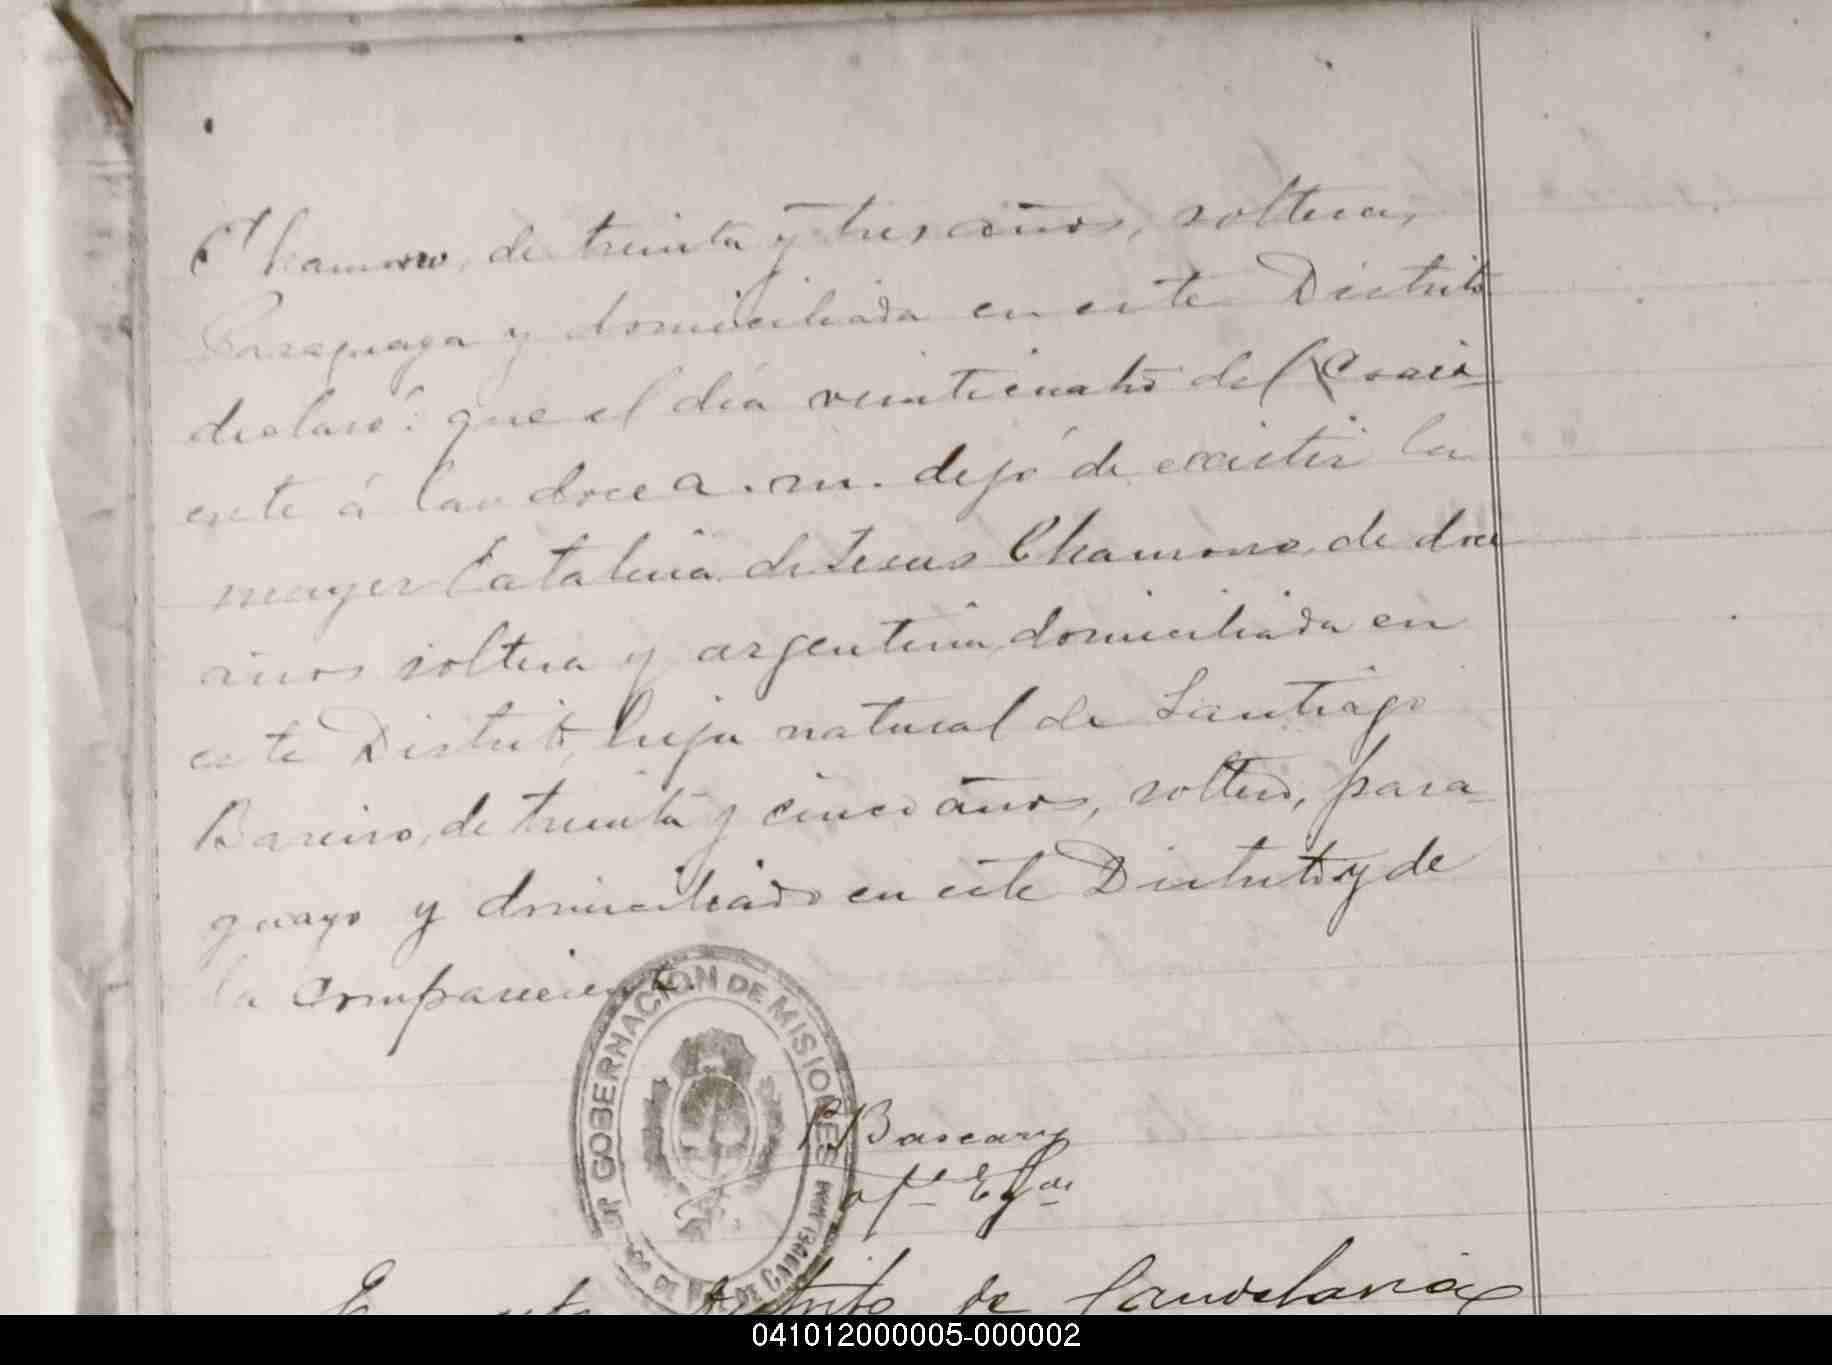 Chamorro, de treinta y tres años, soltera,
Paraguaya y domiciliada en este Distrito
declaró: que el día veinticuatro del Corri-
ente á las doce a.m. dejó de existir la
muger Catalina de Jesus Chamorro, de doce
años soltera y argentina, domiciliada en
este Distrito, hija natural de Santiago
Bareiro, de treinta y cinco años, soltero, para-
guayo y domiciliado en este Distrito y de
la compareciente.
GOBERNACION DE MISIONES
DE CANDELARIA
Bascary
En este Distrito de Candelaria
041012000005-000002